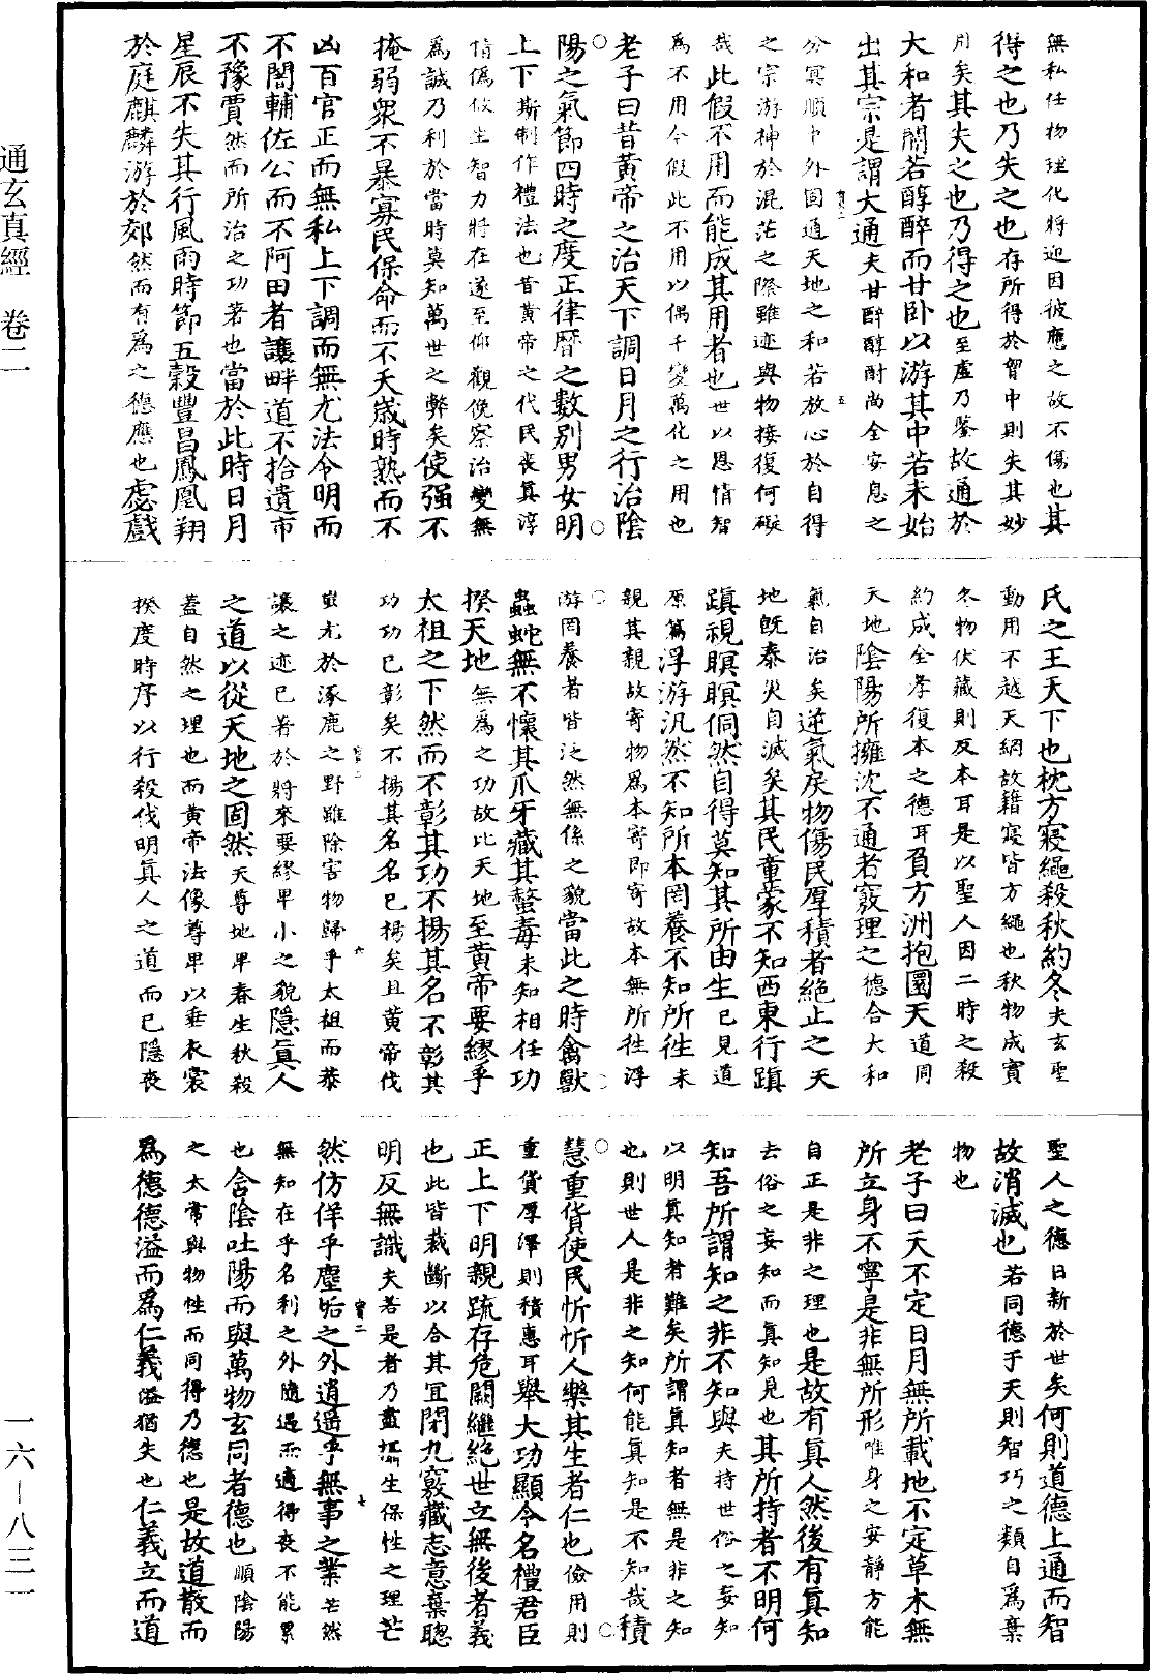 通玄真經　卷二
無私任物理化將迎因彼應之故不傷也其
得之也乃失之也存所得於胷中則失其妙
用矣其失之也乃得之也至虛乃鑒故通於
大和者闇若醇醉而甘卧以游其中若未始
出其宗是謂大通夫甘醉醇酎尚全安息之
分冥順中外圓通天地之和若放心於自得
之宗游神於混茫之際雖迹與物接復何礙
哉此假不用而能成其用者也世以恩情智
爲不用今假此不用以偶千變萬化之用也
老子曰昔黃帝之治天下調日月之行治陰
陽之氣節四時之度正律曆之數別男女明
上下斯制作禮法也昔黃帝之代民喪真淳
情僞攸生智力將在遂至仰觀俛察治變無
爲誠乃利於當時莫知萬世之弊矣使强不
掩弱衆不暴寡民保命而不夭歲時熟而不
凶百官正而無私上下調而無尤法令明而
不闇輔佐公而不阿田者讓畔道不拾遺市
不豫賈然而所治之功著也當於此時日月
星辰不失其行風雨時節五穀豐昌鳳凰翔
於庭麒麟游於郊然而有爲之德應也虙戲
氏之王天下也枕方寢繩殺秋約冬夫玄聖
動用不越天網故籍寢皆方繩也秋物成實
冬物伏藏則反本耳是以聖人因二時之殺
約成全孝復本之德耳負方洲抱圜天道同
天地陰陽所擁沈不通者竅理之德合大和
氣自治矣逆氣戾物傷民厚積者絕止之天
地既泰災自滅矣其民童蒙不知西東行蹎
蹎視瞑瞑侗然自得莫知其所由生已見道
原篇浮游汎然不知所本罔養不知所徃未
親其親故寄物爲本寄即寄故本無所徃浮
游罔養者皆泛然無係之貌當此之時禽獸
蟲蛇無不懷其爪牙藏其螫毒未知相任功
揆天地無爲之功故比天地至黃帝要繆乎
太祖之下然而不彰其功不揚其名不彰其
功功已彰矣不揚其名名已揚矣且黃帝伐
蚩尤於涿鹿之野雖除害物歸乎太祖而恭
讓之迹已著於將來要繆卑小之貌隱真人
之道以從天地之固然天尊地卑春生秋殺
蓋自然之理也而黃帝法像尊卑以垂衣裳
揆度時序以行殺伐明真人之道而已隱喪
聖人之德日新於世矣何則道德上通而智
故消滅也若同德于天則智巧之類自爲棄
物也
老子曰天不定日月無所載地不定草木無
所立身不寧是非無所形唯身之安靜方能
自正是非之理也是故有真人然後有真知
去俗之妄知而真知見也其所持者不明何
知吾所謂知之非不知與夫持世俗之妄知
以明真知者難矣所謂真知者無是非之知
也則世人是非之知何能真知是不知哉積
慧重貨使民忻忻人樂其生者仁也儉用則
重貨厚澤則積惠耳舉大功顯令名禮君臣
正上下明親疏存危闕繼絕世立無後者義
也此皆裁斷以合其宜閉九竅藏志意棄聰
明反無識夫若是者乃盡攝生保性之理芒
然仿佯乎塵垢之外逍遥乎無事之業芒然
無知在乎名利之外隨遇而適得喪不能累
也含陰吐陽而與萬物玄同者德也順陰陽
之太常與物性而同得乃德也是故道散而
爲德德溢而爲仁義溢猶失也仁義立而道
一六—八三二